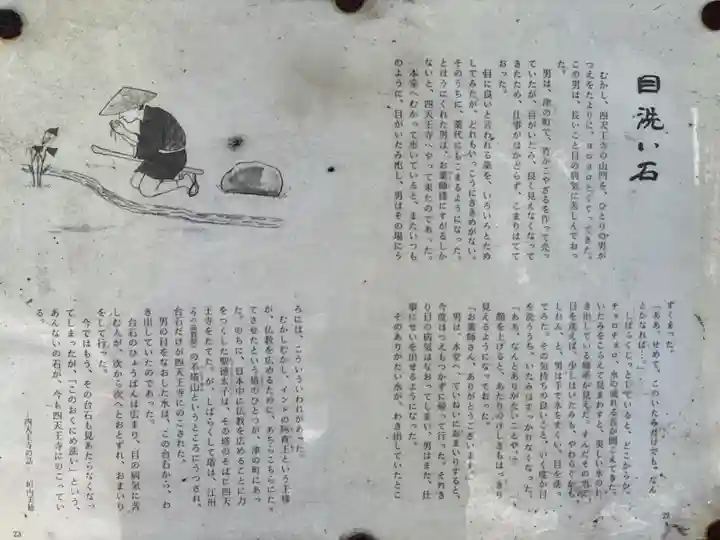 目洗い石
むかし、四天王寺の山門を、ひとりの男が
つえをたよりに、ヨロヨロとくぐってきた。
この男は、長いこと目の病気に苦しんでおっ
た。
男は、津の町で、竹かごやざるを作って売っ
ていたが、目がいたみ、良く見えなくなって
きたため、仕事がはかどらず、こまりはてて
おった。
目に良いと言われる薬を、いろいろとため
してみたが、どれもいっこうにききめがない。
そのうちに、薬代にもこまるようになった。
とほうにくれた男は、お薬師様にすがるしか
ないと、四天王寺へやって来たのであった。
本堂へむかって歩いていると、またいつも
のように、目がいたみ出し、男はその場にう
ずくまった。
「ああ、せめて、このいたみだけでも、なん
とかなれば…。」
しばらくじっとしていると、どこからか、
チョロチョロ、水の流れる音が聞こえてきた。
いたみをこらえて見まわすと、美しい水のわ
き出している場所が見えた。すんだその水で
目を洗えば、少しはいたみも、やわらぐかも
しれん、と、男は手で水をすくい、目を洗っ
てみた。その気持ちの良いこと。いく度か目
を洗ううち、いたみはすっかりなくなった。
「ああ、なんとありがたいことや。」
顔を上げると、あたりのけしきもはっきり
見えるようになっておった。
「お薬師さん、ありがとうございます。」
男は、本堂へ、ていねいにおまいりすると、
今度はつえもつかずに帰って行った。それき
り目の病気はなおってしまい、男はまた、仕
事にせいを出せるようになった。
そのありがたい水が、わき出していたとこ
ろには、こういういわれがあった。
むかしむかし、インドの阿育王という王様
が、仏教を広めるために、あちらこちらにた
てさせたという塔のひとつが、津の町にあっ
た。のちに、日本中に仏教を広めることに力
をつくした聖徳太子は、その塔のそばに四天
王寺をたてた。が、しばらくして塔は、江州
（今の滋賀県）の石塔山というところにうつされ、
台石だけが四天王寺にのこされた。
男の目をなおした水は、この台石から、わ
き出していたのであった。
台石のひょうばんは広まり、目の病気に苦
しむ人が、次から次へとおとずれ、おまいり
をして行った。
今ではもう、その台石も見あたらなくなっ
てしまったが、「このおくにめ洗い」という、
あんないの石が、今も四天王寺にのこってい
る。
―四天王寺の話
23